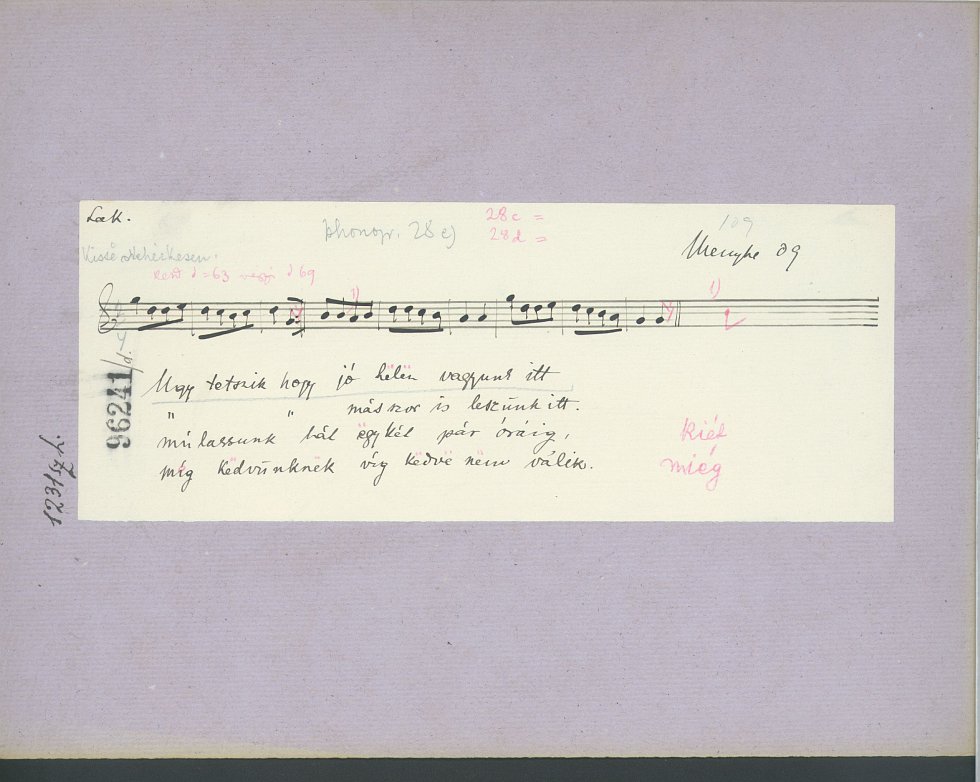 Lak.
phonogr. 28 c)
28c =
28d =
109
Menyhe 09
Kissé nehézkesen.
kezd ♩=63 végzi ♩ 69
1)
1)
Ugy tetszik hogy jó hëlën vagyunk itt
" " mászor is leszünk itt.
múlassunk hát ëgykét pár óráig,
míg kedvünknëk víg kedvë nëm válik.
kiét
miég
96241/d.